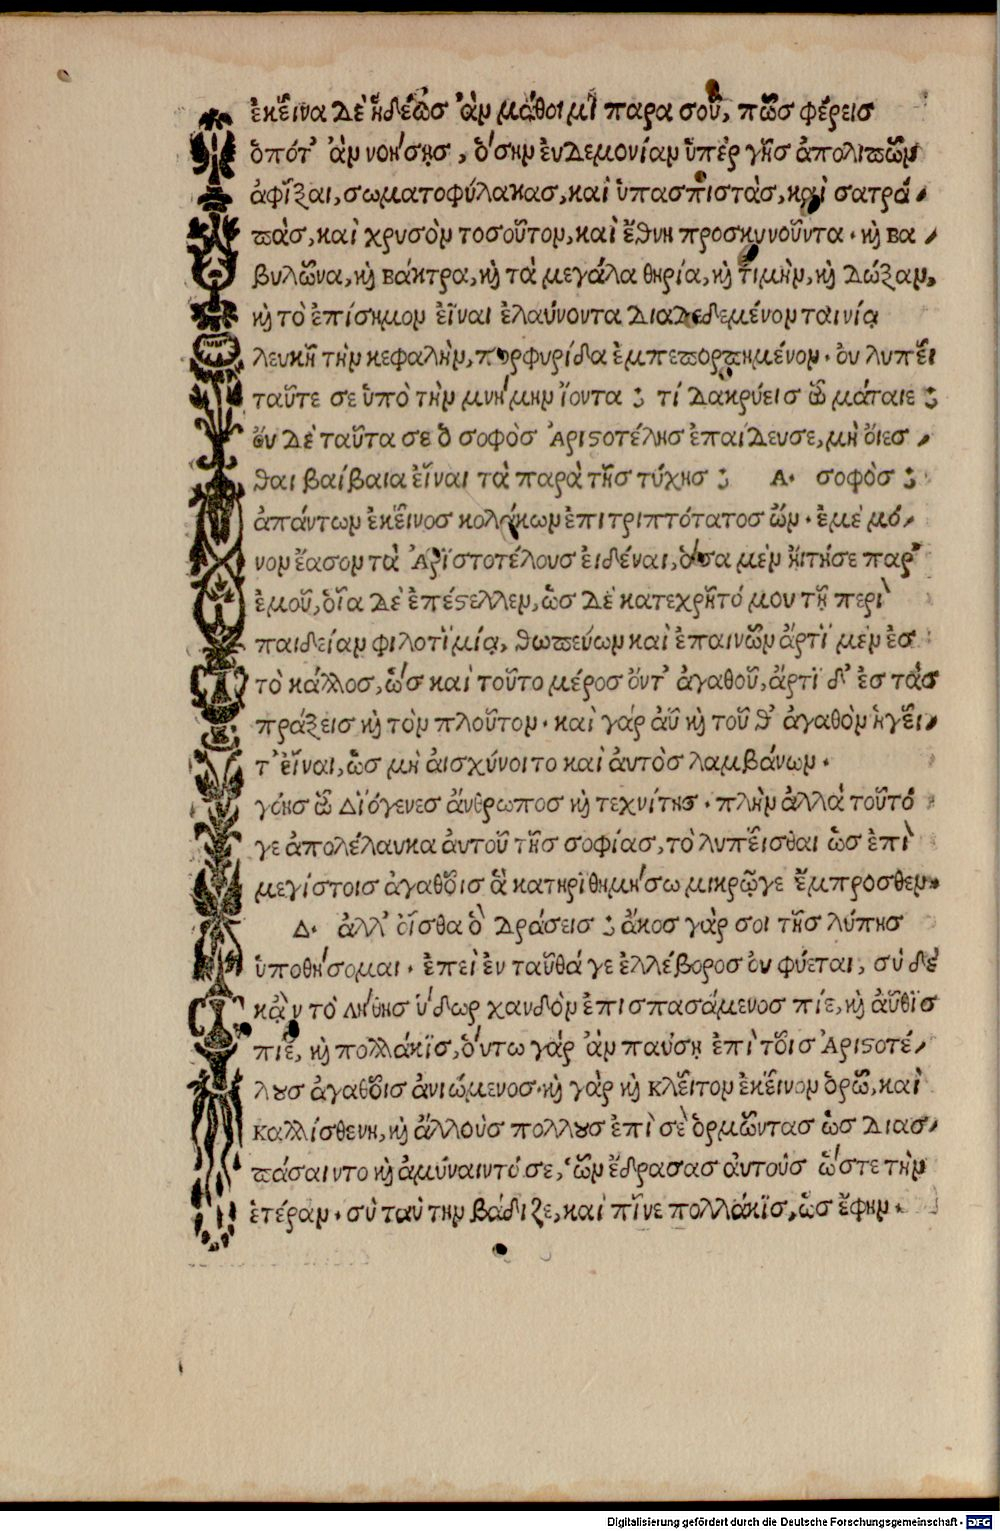 ἐκεῖνα δὲ ἡδέως ἂν μάθοιμι παρα σοῦ, πῶς φέρεις
ὁπότ' ἂν νοήσῃς, ὅσην ἐυδεμονίαν ὑπέρ γῆς ἀπολιπῶν
ἀφῖξαι, σωματοφύλακας, καὶ ὑπασπιστὰς, καὶ σατρά-
πὰς, καὶ χρυσὸν τοσοῦτον, καὶ ἔθνη προσκυνοῦντα. κὴ βα-
βυλῶνα, κὴ βάκτρα, κὴ τὰ μεγάλα θηρία, κὴ τιμὴν, κὴ δώξαν,
κὴ τὸ ἐπίσημον εἶναι ἐλαύνοντα διαδεδεμένον ταινίᾳ
λευκῇ τὴν κεφαλὴν, πορφυρίδα ἐμπεπορπημένον. ὀυ λυπεῖ
ταῦτε σε ὑπὸ τὴν μνήμην ἴοντα ; τί δακρύεις ὦ μάταιε ;
ὄυ δὲ ταῦτα σε ὁ σοφὸς Ἀριϛοτέλης ἐπαίδευσε, μὴ ὄιεσ-
θαι βαίβαια εἶναι τὰ παρὰ τῆς τύχης ; Α. σοφὸς ;
ἁπάντων ἐκεῖνος κολάκων ἐπιτριπτότατος ὦν. ἐμέ μό-
νον ἔασον τὰ Ἀριστοτέλους ἐιδέναι, ὅσα μὲν ᾔιτησε παρ'
ἐμοῦ, ὁῖα δὲ ἐπέϛελλεν, ὡς δὲ κατεχρῆτό μου τῇ περὶ
παιδείαν φιλοτϊμίᾳ, θωπεύων καὶ ἐπαινῶν ἄρτϊ μὲν ἐσ
τὸ κάλλος, ὡς καὶ τοῦτο μέρος ὄντ' ἀγαθοῦ, ἄρτϊ δ' ἐς τὰς
πράξεις κὴ τὸν πλοῦτον. καὶ γάρ ἀῦ κὴ τοῦθ' ἀγαθὸν ἡγεῖ-
τ' εἶναι, ὡς μὴ ἀισχύνοιτο καὶ ἀυτὸς λαμβάνων.
γόης ὦ Διόγενες ἄνθρωπος κὴ τεχνίτης. πλὴν ἀλλὰ τοῦτό
γε ἀπολέλαυκα ἀυτοῦ τῆς σοφίας, τὸ λυπεῖσθαι ὡς ἐπὶ
μεγίστοις ἀγαθοῖς ἃ κατηριθμήσω μικρῷγε ἔμπροσθεν.
Δ. ἀλλ' ὀῖσθα ὃ δράσεις ; ἄκος γὰρ σοι τῆς λύπης
ὑποθήσομαι. ἐπεὶ ἐν ταῦθά γε ἐλλέβορος ὀυ φύεται, σὺ δὲ
κᾂν τὸ λήθης ὕδωρ χανδὸν ἐπισπασάμενος πίε, κὴ ἀῦθϊς
πιέ, κὴ πολλάκϊς, ὅυτω γάρ ἂν παύσῃ ἐπὶ τοῖς Ἀριϛοτέ-
λȣς ἀγαθοῖς ἀνιώμενος. κὴ γὰρ κὴ κλεῖτον ἐκεῖνον ὁρῶ, καὶ
καλλίσθενη, κὴ ἄλλους πολλȣς ἐπὶ σὲ ὁρμῶντας ὡς διασ-
πάσαιντο κὴ ἀμύναιντό σε, ὧν ἔδρασας ἀυτούς ὥστε τὴν
ἑτέραν. σὺ ταύτην βάδιζε, καὶ πῖνε πολλάκϊς, ὡς ἔφην.
Digitalisierung gefördert durch die Deutsche Forschungsgemeinschaft - DFG